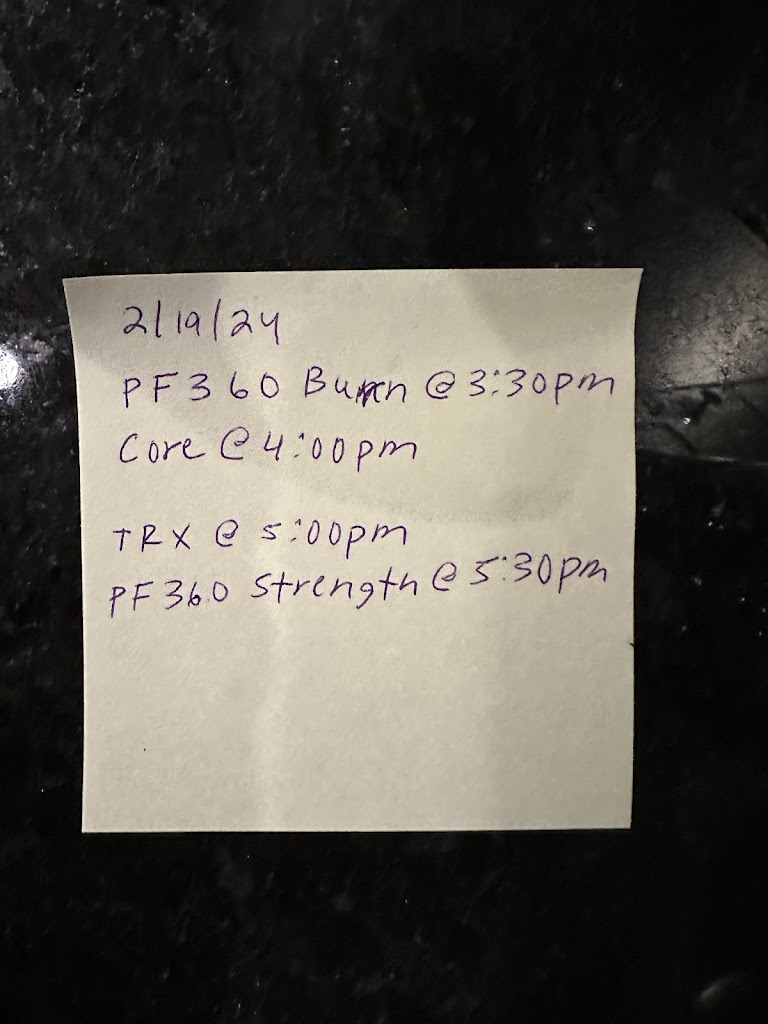 2/19/24
PF360 Burn @ 3:30pm
Core @ 4:00pm
TRX @ 5:00pm
PF360 Strength @ 5:30pm